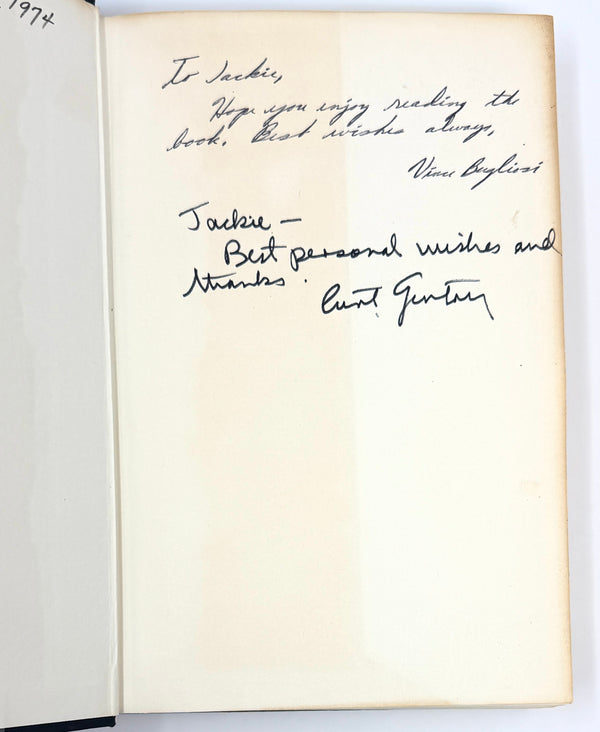 1974
To Jackie,
Hope you enjoy reading the
book. Best wishes always,
Vince Bugliosi
Jackie —
Best personal wishes and
thanks.
Curt Gentry